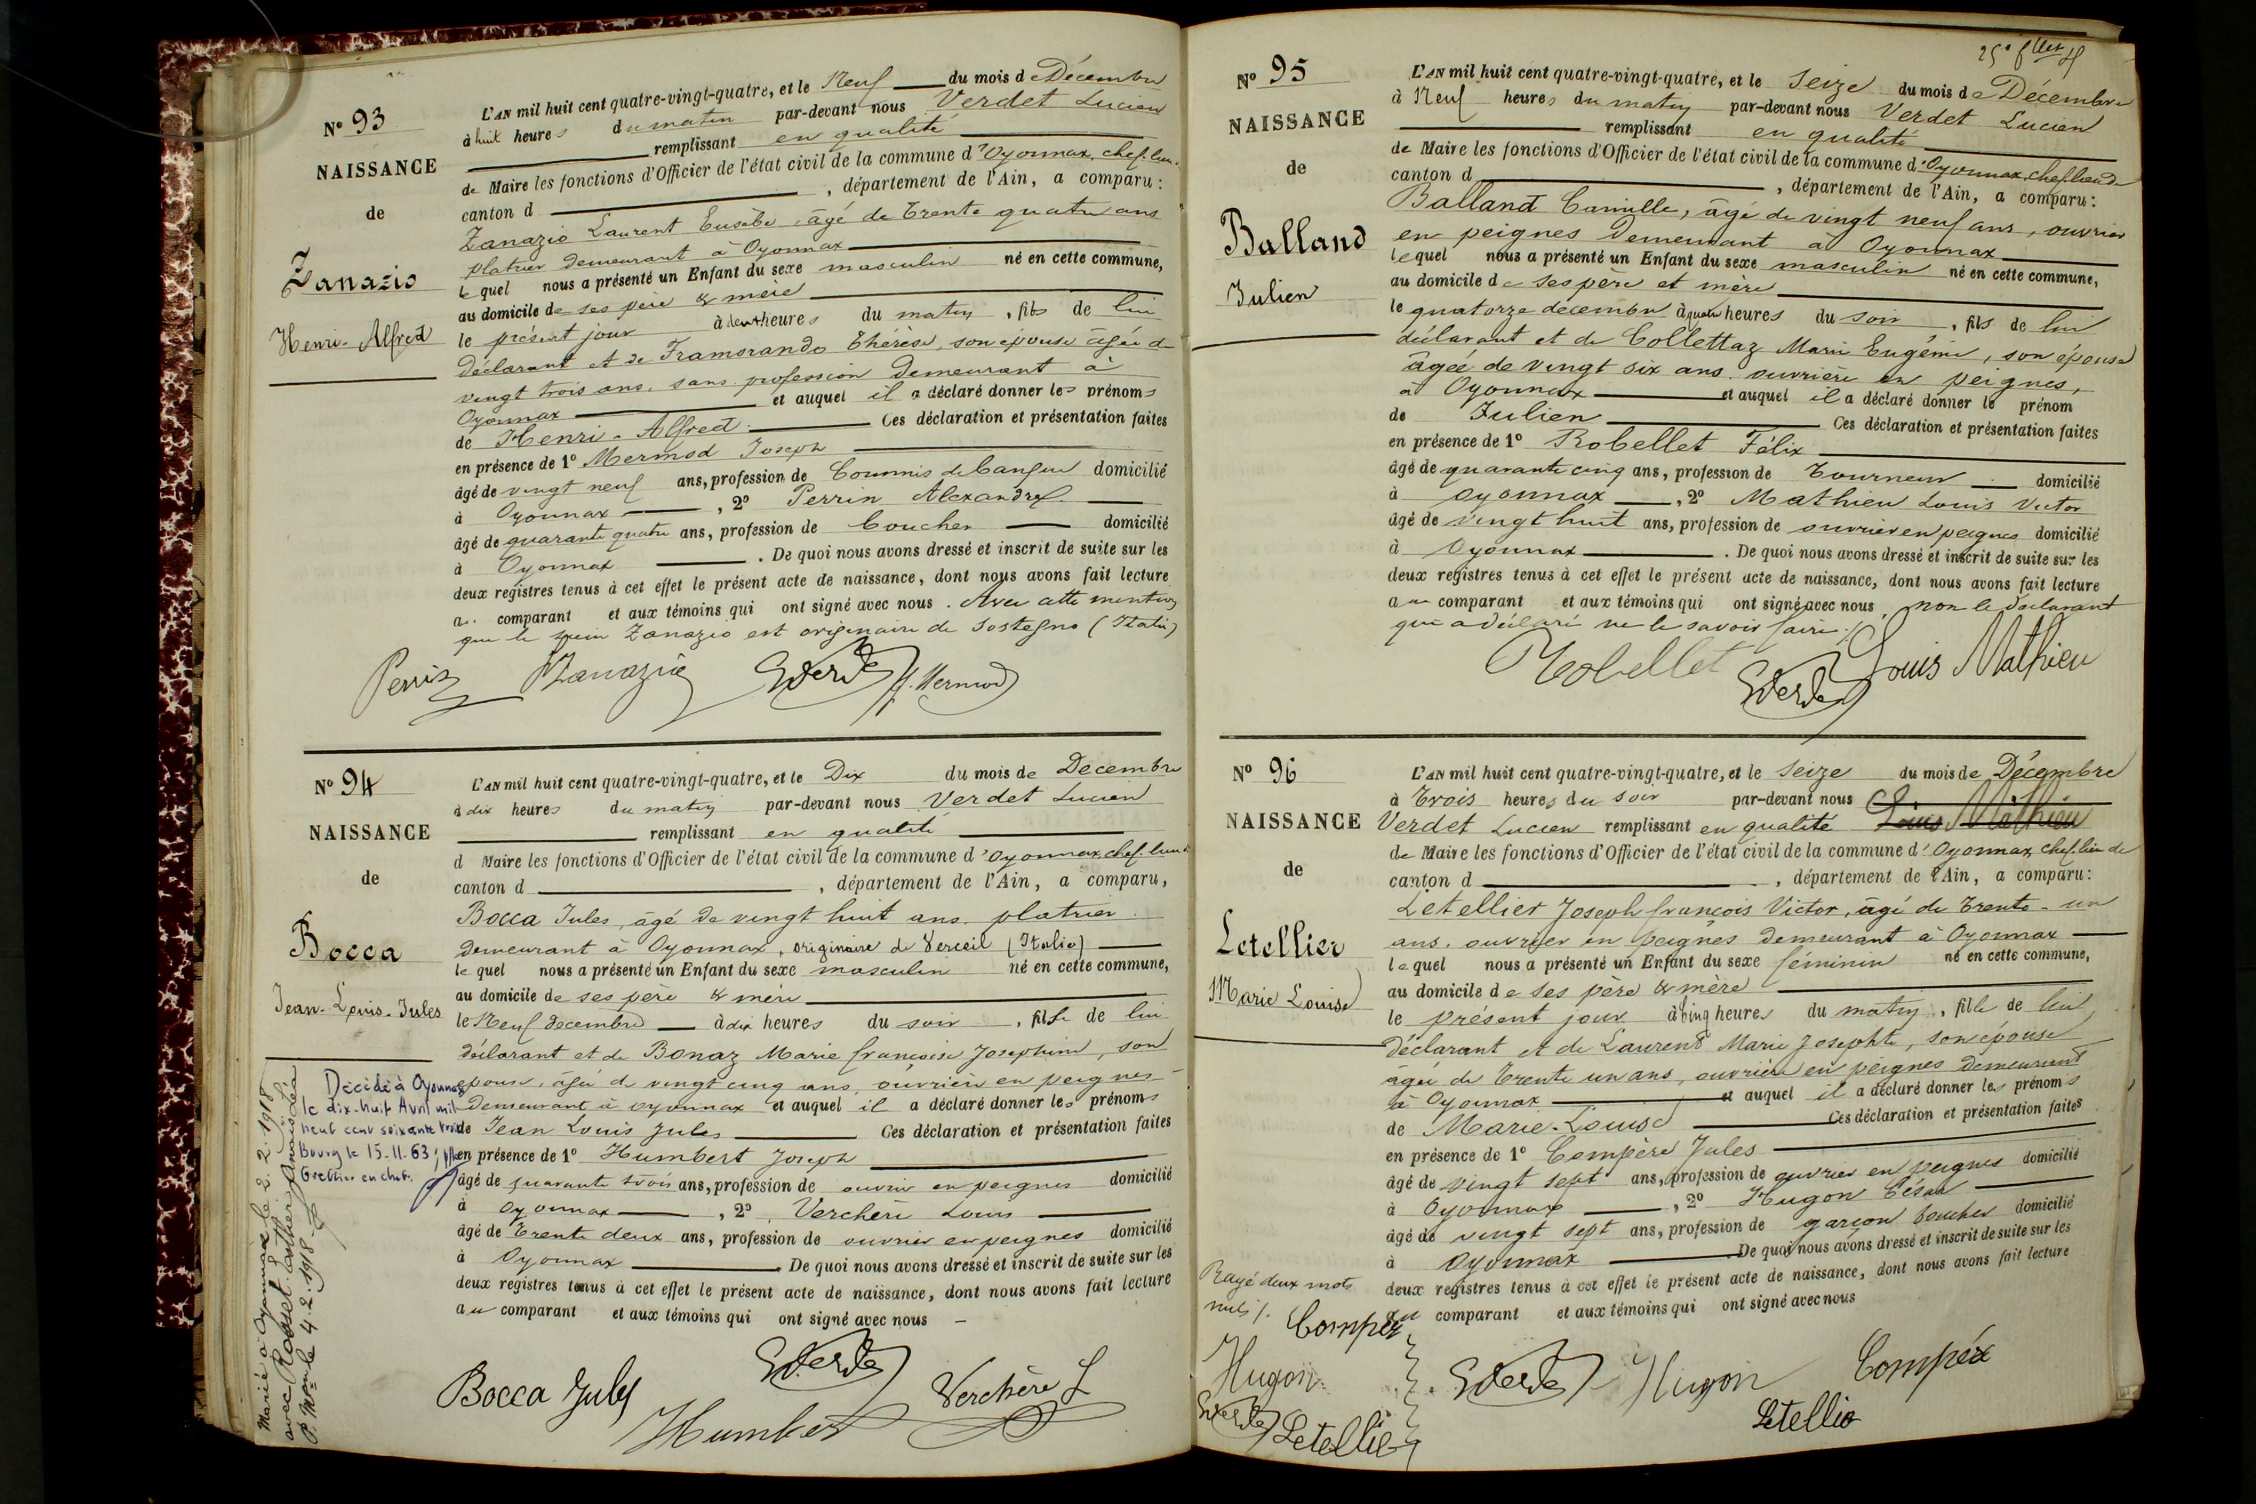 N° 93
NAISSANCE
de
Zanazio
Henri-Alfred
L'AN mil huit cent quatre-vingt-quatre, et le Neuf du mois de Décembre
à huit heures du matin par-devant nous Verdet Lucien
remplissant en qualité
de Maire les fonctions d'Officier de l'état civil de la commune d'Oyonnax, chef-lieu
canton d , département de l'Ain, a comparu:
Zanazio Laurent Eusèbe, âgé de trente quatre ans
platrier demeurant à Oyonnax
lequel nous a présenté un Enfant du sexe masculin né en cette commune,
au domicile de ses père & mère
le présent jour à heures du matin, fils de lui
déclarant et de Framorando Thérèse, son épouse âgée de
vingt trois ans, sans profession demeurant à
Oyonnax et auquel il a déclaré donner les prénoms
de Henri-Alfred. Ces déclaration et présentation faites
en présence de 1° Mermod Joseph
âgé de vingt neuf ans, profession de Commis de banque domicilié
à Oyonnax , 2° Perrin Alexandre
âgé de quarante quatre ans, profession de boucher domicilié
à Oyonnax . De quoi nous avons dressé et inscrit de suite sur les
deux registres tenus à cet effet le présent acte de naissance, dont nous avons fait lecture
au comparant et aux témoins qui ont signé avec nous. Avec cette mention
que le sieur Zanazio est originaire de Sostegno (Italie)
Perrin Zanazio Verdet J. Mermod
N° 94
NAISSANCE
de
Bocca
Jean-Louis-Jules
L'AN mil huit cent quatre-vingt-quatre, et le Dix du mois de Decembre
à dix heures du matin par-devant nous Verdet Lucien
remplissant en qualité
d Maire les fonctions d'Officier de l'état civil de la commune d'Oyonnax, chef-lieu d
canton d , département de l'Ain, a comparu,
Bocca Jules, âgé de vingt huit ans, platrier
demeurant à Oyonnax, originaire de Verceil (Italie)
lequel nous a présenté un Enfant du sexe masculin né en cette commune,
au domicile de ses père & mère
le Neuf decembre à dix heures du soir, fils de lui
déclarant et de Bonaz Marie françoise Josephine, son
épouse, âgée de vingt cinq ans, ouvrière en peignes
demeurant à Oyonnax et auquel il a déclaré donner les prénoms
de Jean Louis Jules Ces déclaration et présentation faites
en présence de 1° Humbert Joseph
âgé de quarante trois ans, profession de ouvrier en peignes domicilié
à Oyonnax , 2° Verchère Louis
âgé de trente deux ans, profession de ouvrier en peignes domicilié
à Oyonnax . De quoi nous avons dressé et inscrit de suite sur les
deux registres tenus à cet effet le présent acte de naissance, dont nous avons fait lecture
au comparant et aux témoins qui ont signé avec nous
Décédé à Oyonnax
le dix-huit Avril mil
neuf cent soixante trois
Bourg le 15-11-63
Greffier en chef.
Marié à Oyonnax le 2.2.1918
avec Rosset Esther Anaïs Léa
P. Mon le 4.2.1918
Bocca Jules Verdet Verchère L
Humbert
25e flet
N° 95
NAISSANCE
de
Balland
Julien
L'AN mil huit cent quatre-vingt-quatre, et le Seize du mois de Décembre
à Neuf heures du matin par-devant nous Verdet Lucien
remplissant en qualité
de Maire les fonctions d'Officier de l'état civil de la commune d'Oyonnax, chef-lieu de
canton d , département de l'Ain, a comparu:
Balland Camille, âgé de vingt neuf ans, ouvrier
en peignes demeurant à Oyonnax
lequel nous a présenté un Enfant du sexe masculin né en cette commune,
au domicile de ses père et mère
le quatorze decembre à quatre heures du soir, fils de lui
déclarant et de Collettaz Marie Eugénie, son épouse
âgée de vingt six ans, ouvrière en peignes,
à Oyonnax et auquel il a déclaré donner le prénom
de Julien Ces déclaration et présentation faites
en présence de 1° Robellet Félix
âgé de quarante cinq ans, profession de Tourneur domicilié
à Oyonnax , 2° Mathieu Louis Victor
âgé de vingt huit ans, profession de ouvrier en peignes domicilié
à Oyonnax . De quoi nous avons dressé et inscrit de suite sur les
deux registres tenus à cet effet le présent acte de naissance, dont nous avons fait lecture
au comparant et aux témoins qui ont signé avec nous, non le déclarant
qui a déclaré ne le savoir faire./.
Robellet Verdet Louis Mathieu
N° 96
NAISSANCE
de
Letellier
Marie Louise
L'AN mil huit cent quatre-vingt-quatre, et le Seize du mois de Décembre
à Trois heures du soir par-devant nous
Verdet Lucien remplissant en qualité Louis Mathieu
de Maire les fonctions d'Officier de l'état civil de la commune d'Oyonnax, chef-lieu de
canton d , département de l'Ain, a comparu:
Letellier Joseph françois Victor, âgé de trente-un
ans, ouvrier en peignes demeurant à Oyonnax
lequel nous a présenté un Enfant du sexe féminin né en cette commune,
au domicile de ses père & mère
le présent jour à cinq heures du matin, fille de lui
déclarant et de Laurent Marie Josephte, son épouse
âgée de trente un ans, ouvrière en peignes demeurant
à Oyonnax et auquel il a déclaré donner les prénoms
de Marie-Louise Ces déclaration et présentation faites
en présence de 1° Compère Jules
âgé de vingt sept ans, profession de ouvrier en peignes domicilié
à Oyonnax , 2° Hugon César
âgé de vingt sept ans, profession de garçon boucher domicilié
à Oyonnax . De quoi nous avons dressé et inscrit de suite sur les
deux registres tenus à cet effet le présent acte de naissance, dont nous avons fait lecture
au comparant et aux témoins qui ont signé avec nous
Rayé deux mots
nuls /.
Compère
Hugon
Verdet Letellier
Verdet Hugon Compère
Letellier